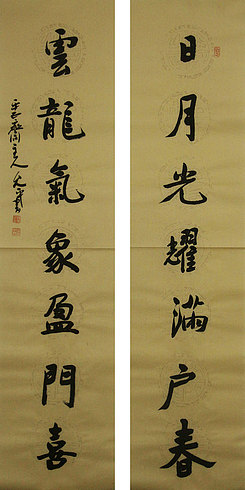 日月光耀滿户春
雲龍氣象盈門喜